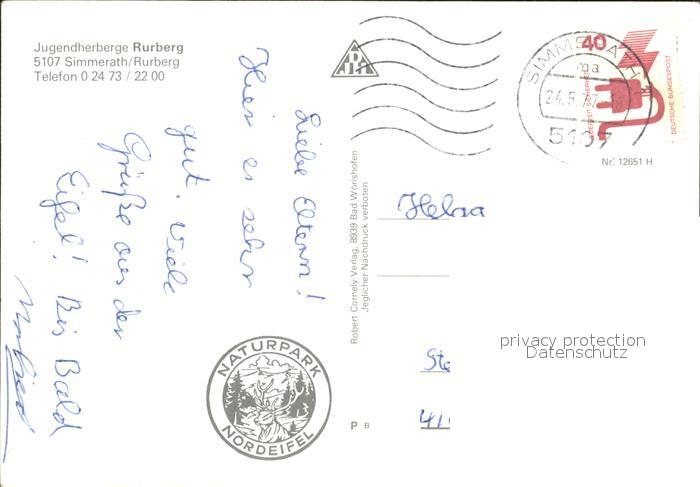 Jugendherberge Rurberg
5107 Simmerath/Rurberg
Telefon 0 24 73 / 22 00
Liebe Eltern!
Hier es sehr
gut. Viele
Grüße aus der
Eifel! Bis Bald
Robert Cornely Verlag, 8939 Bad Wörishofen
Jeglicher Nachdruck verboten
SIMMERATH
24.5.77
5107
40
DEUTSCHE BUNDESPOST
Nr. 12651 H
privacy protection
Datenschutz
Ste
NATURPARK
NORDEIFEL
P 8